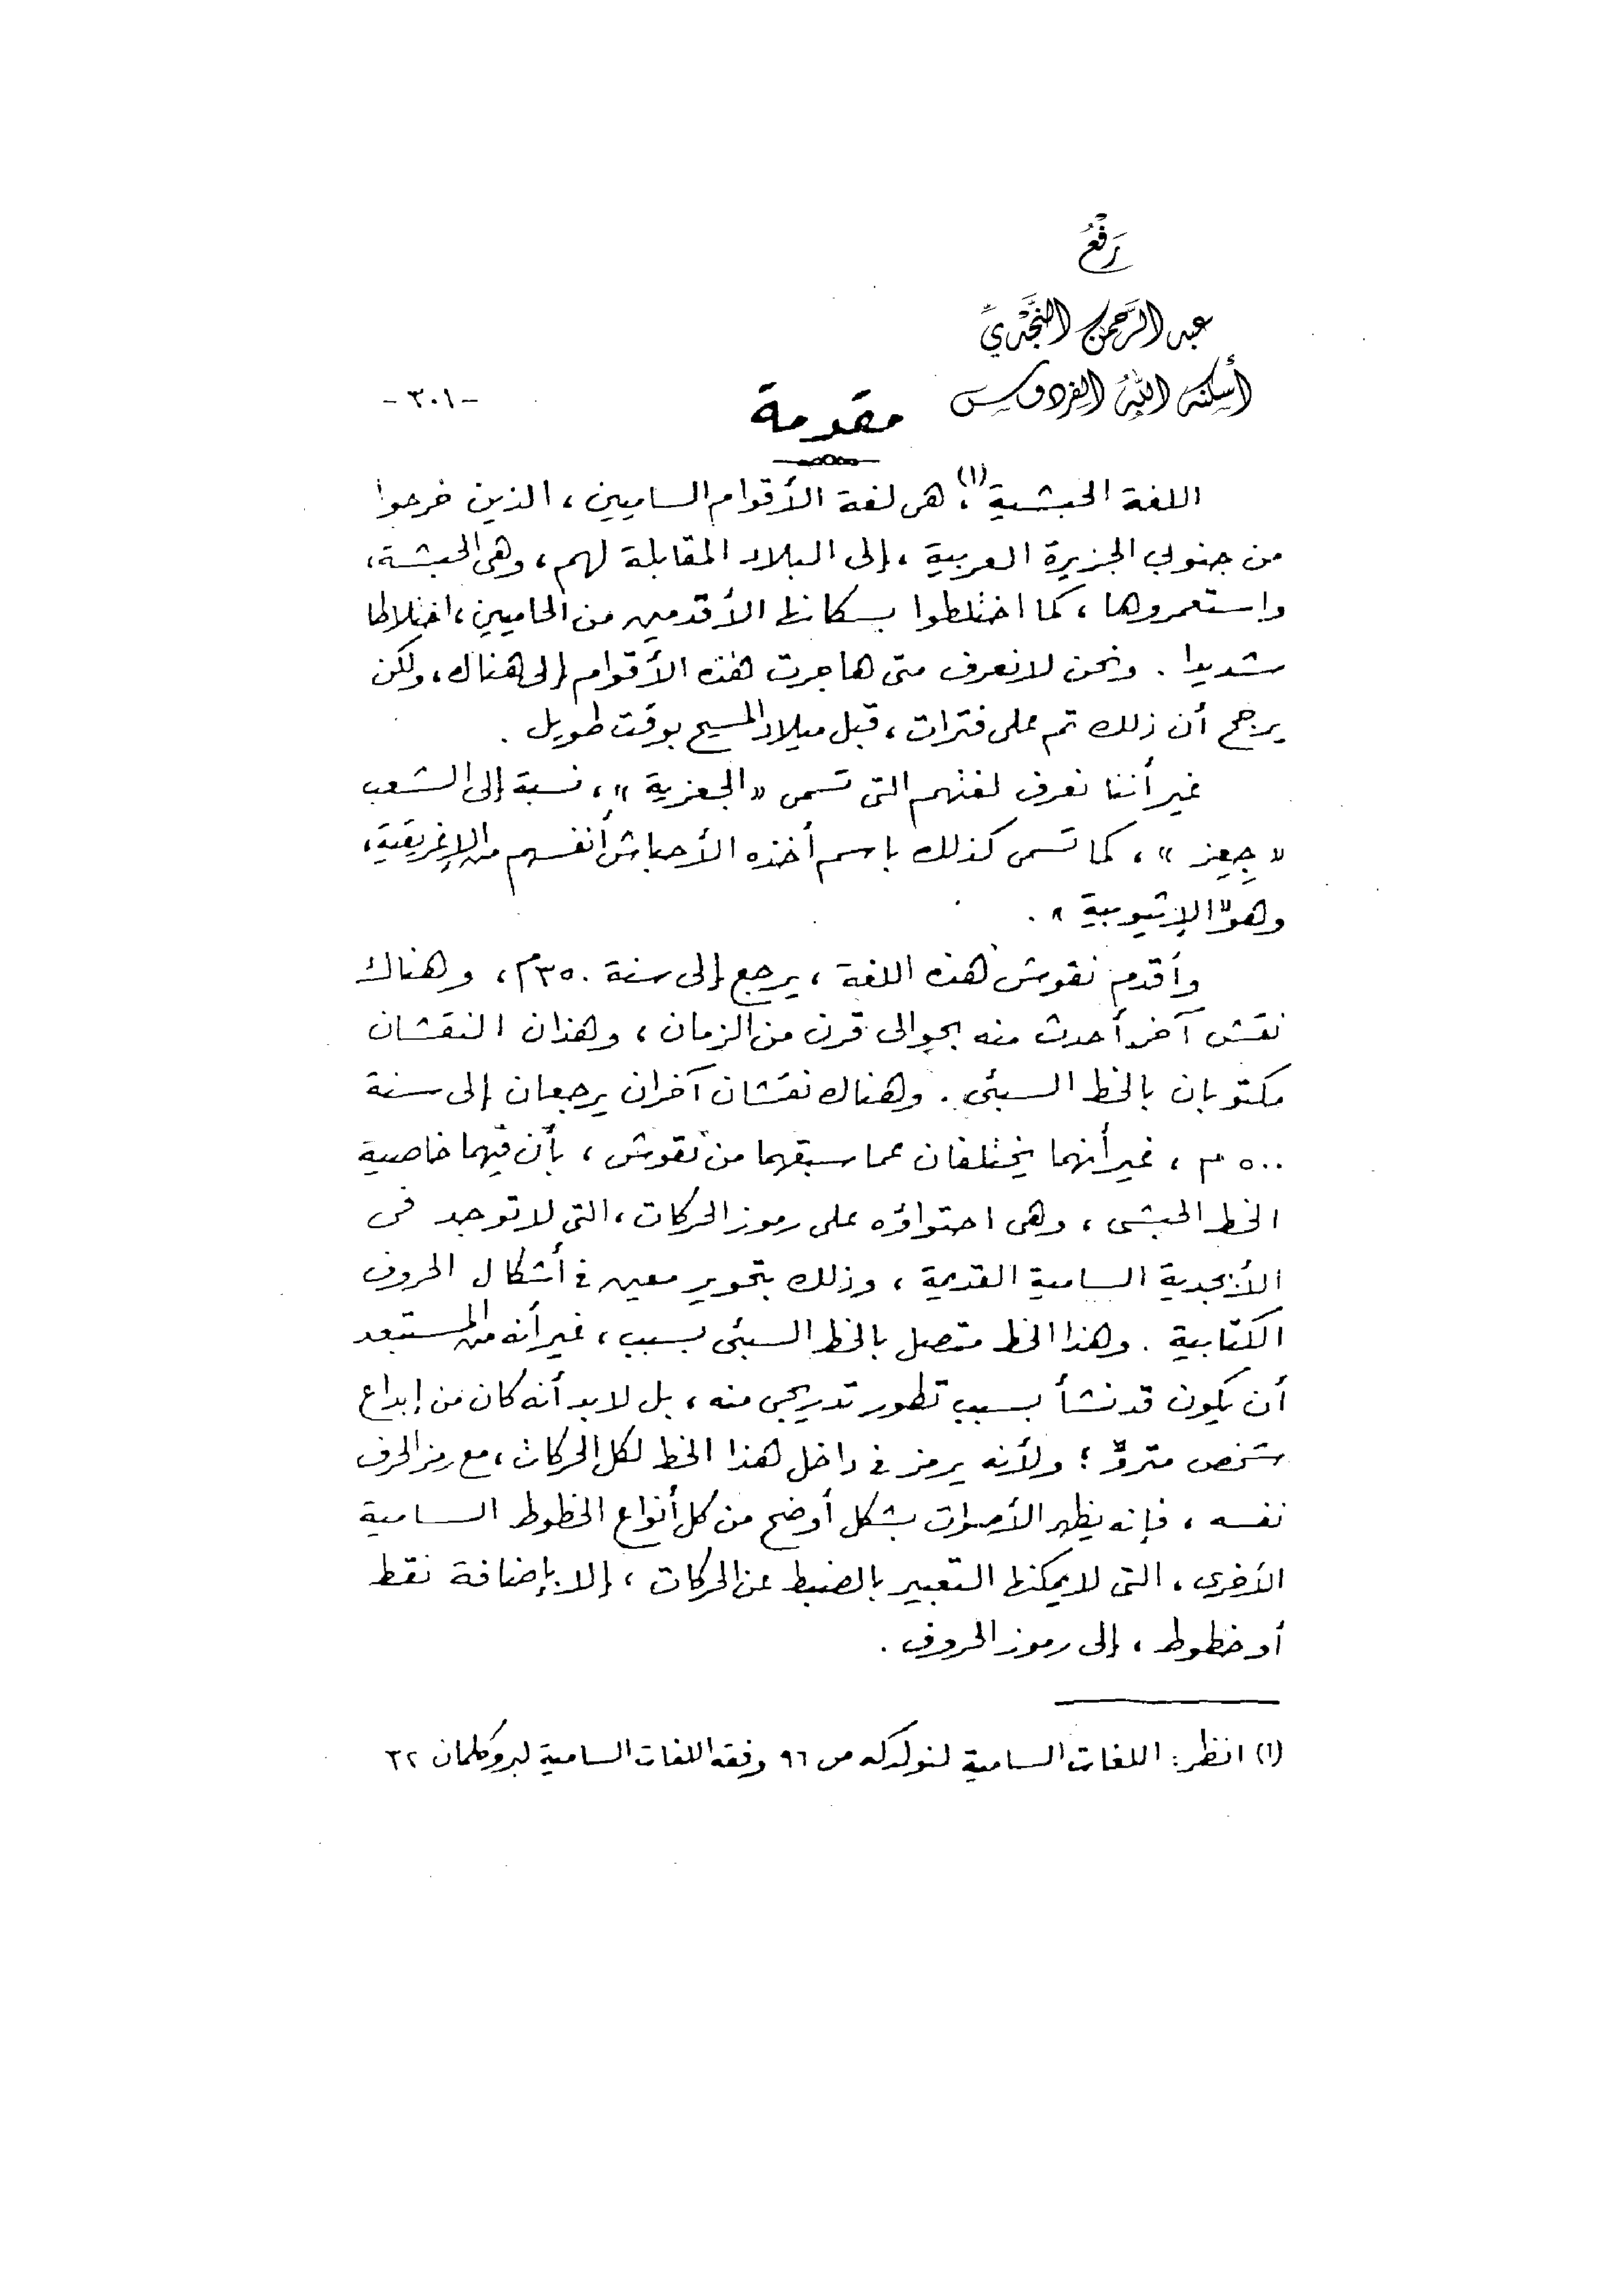 رَفْعُ
عبد الرَّحمن النَّجْديِّ
أسكنه اللهُ الفردوس
- ٣٠١ -
مقدمة
اللغة الحبشية(١)، هى لغة الأقوام الساميين، الذين خرجوا
من جنوبى الجزيرة العربية، إلى البلاد المقابلة لهم، وهى الحبشة،
واستعمروها، كما اختلطوا بسكانها الأقدمين من الحاميين، اختلاطا
شديدا. ونحن لانعرف متى هاجرت هذه الأقوام إلى هناك، ولكن
يرجح أن ذلك تم على فترات، قبل ميلاد المسيح بوقت طويل.
غير أننا نعرف لغتهم التى تسمى «الجعزية»، نسبة إلى الشعب
«جِعِز»، كما تسمى كذلك باسم أخذه الأحباش أنفسهم من الإغريقية،
وهو «الإثيوبية».
وأقدم نقوش هذه اللغة، يرجع إلى سنة ٣٥٠م، وهناك
نقش آخر أحدث منه بحوالى قرن من الزمان، وهذان النقشان
مكتوبان بالخط السبئى. وهناك نقشان آخران يرجعان إلى سنة
٥٠٠ م، غير أنهما يختلفان عما سبقهما من نقوش، بأن فيهما خاصية
الخط الحبشى، وهى احتواؤه على رموز الحركات، التى لا توجد فى
الأبجدية السامية القديمة، وذلك بتحوير معين فى أشكال الحروف
الكتابية. وهذا الخط متصل بالخط السبئى بسبب، غير أنه من المستبعد
أن يكون قد نشأ بسبب تطور تدريجى منه، بل لابد أنه كان من إبداع
شخص متروٍّ؛ ولأنه يرمز فى داخل هذا الخط لكل الحركات، مع رمز الحرف
نفسه، فإنه يظهر الأصوات بشكل أوضح من كل أنواع الخطوط السامية
الأخرى، التى لايمكنها التعبير بالضبط عن الحركات، إلا بإضافة نقط
أو خطوط، إلى رموز الحروف.
(١) انظر: اللغات السامية لنولدكه ص ٩٦ وفقه اللغات السامية لبروكلمان ٣٢